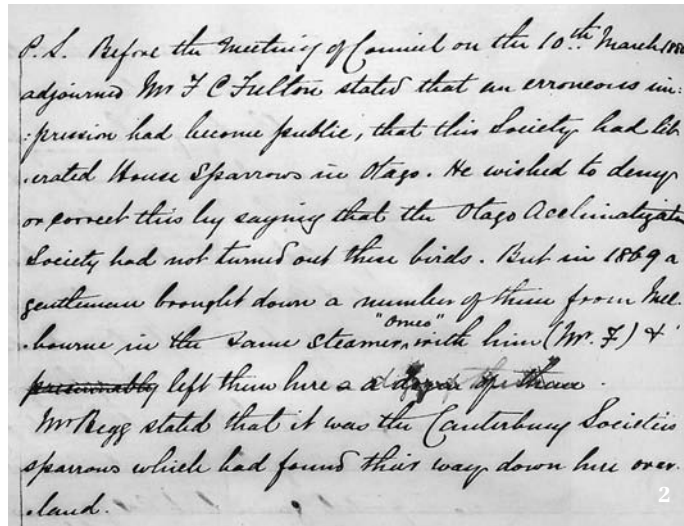 P.S. Before the Meeting of Council on the 10th March 188
adjourned Mr F C Fulton stated that an erroneous im:
:pression had become public, that this Society had lib
.erated House Sparrows in Otago. He wished to deny
or correct this by saying that the Otago Acclimatizatn
Society had not turned out these birds. But in 1869 a
gentleman brought down a number of them from Mel
.bourne in the same steamer "Omeo" with him (Mr. F) &
presumably left them here
Mr Begg stated that it was the Canterbury Societies
sparrows which had found their way down here over.
.land.
2